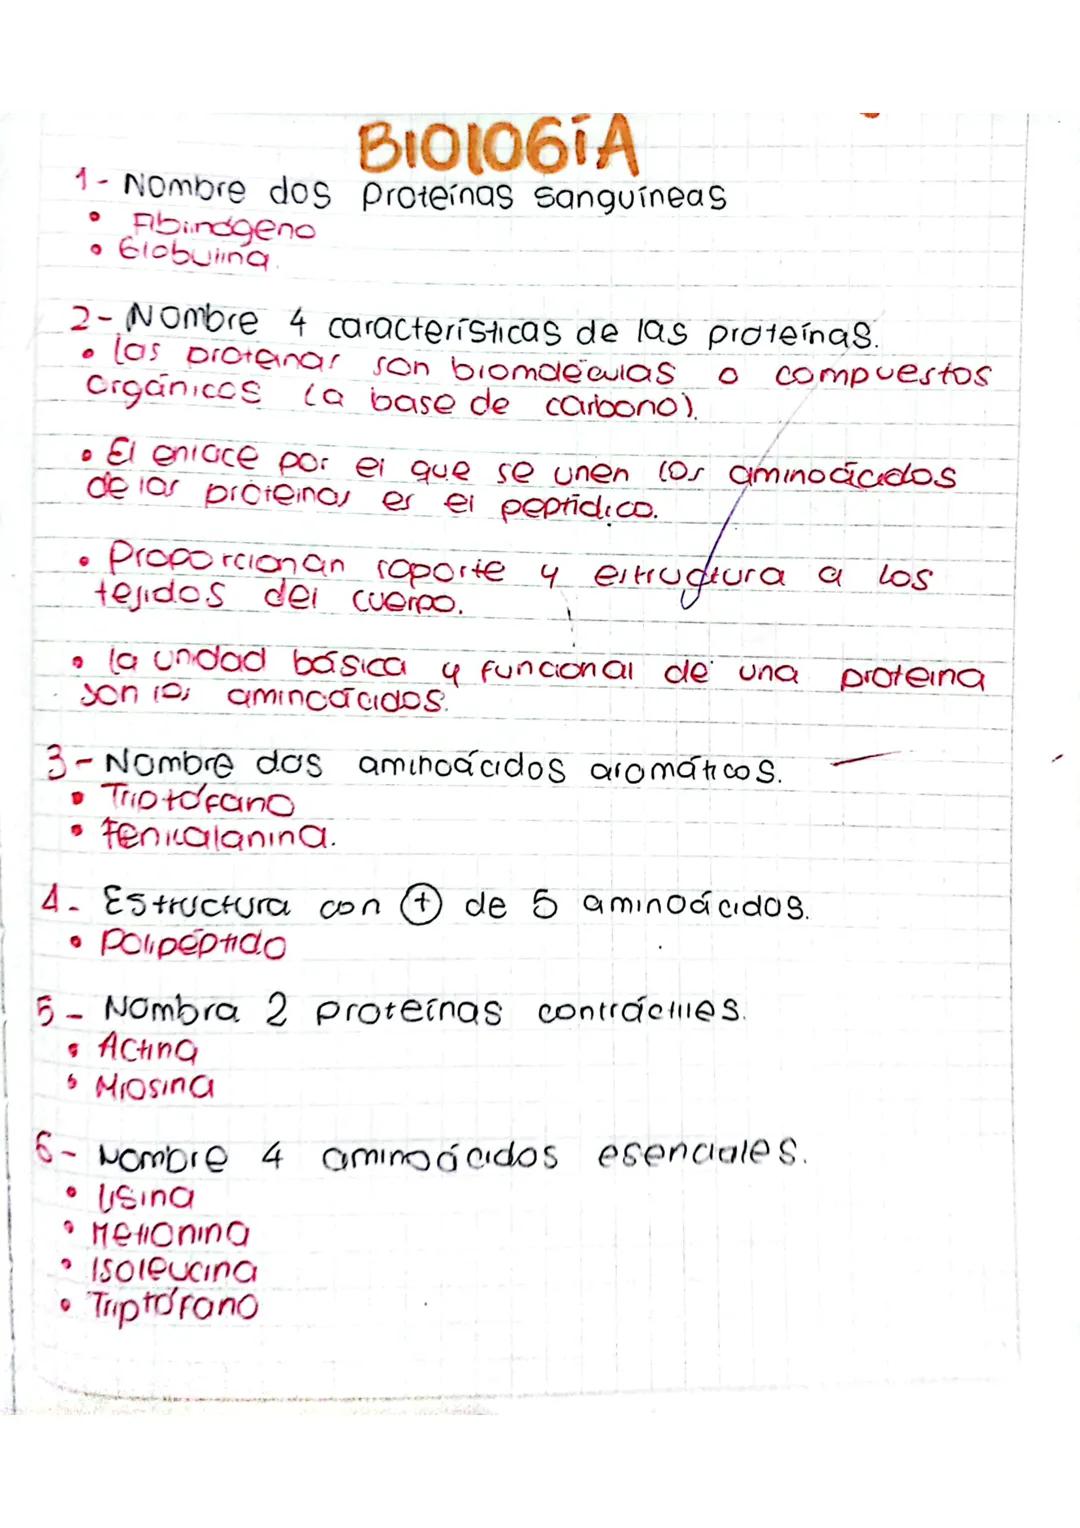 BIOlOGÍA
1- Nombre dos proteínas sanguíneas
• Fibinógeno
• Globulina.
2- Nombre 4 características de las proteínas.
• las proteínas son biomoléculas o compuestos
orgánicos (a base de carbono).
• El enlace por el que se unen los aminoácidos
de las proteínas es el peptídico.
• Proporcionan soporte y estructura a los
tejidos del cuerpo.
• la unidad básica y funcional de una proteína
son los aminoácidos.
3- Nombre dos aminoácidos aromáticos.
• Triptófano
• Fenilalanina.
4- Estructura con + de 5 aminoácidos.
• Polipéptido
5- Nombra 2 proteínas contráctiles.
• Actina
• Miosina
6- Nombre 4 aminoácidos esenciales.
• lisina
• Metionina
• Isoleucina
• Triptófano